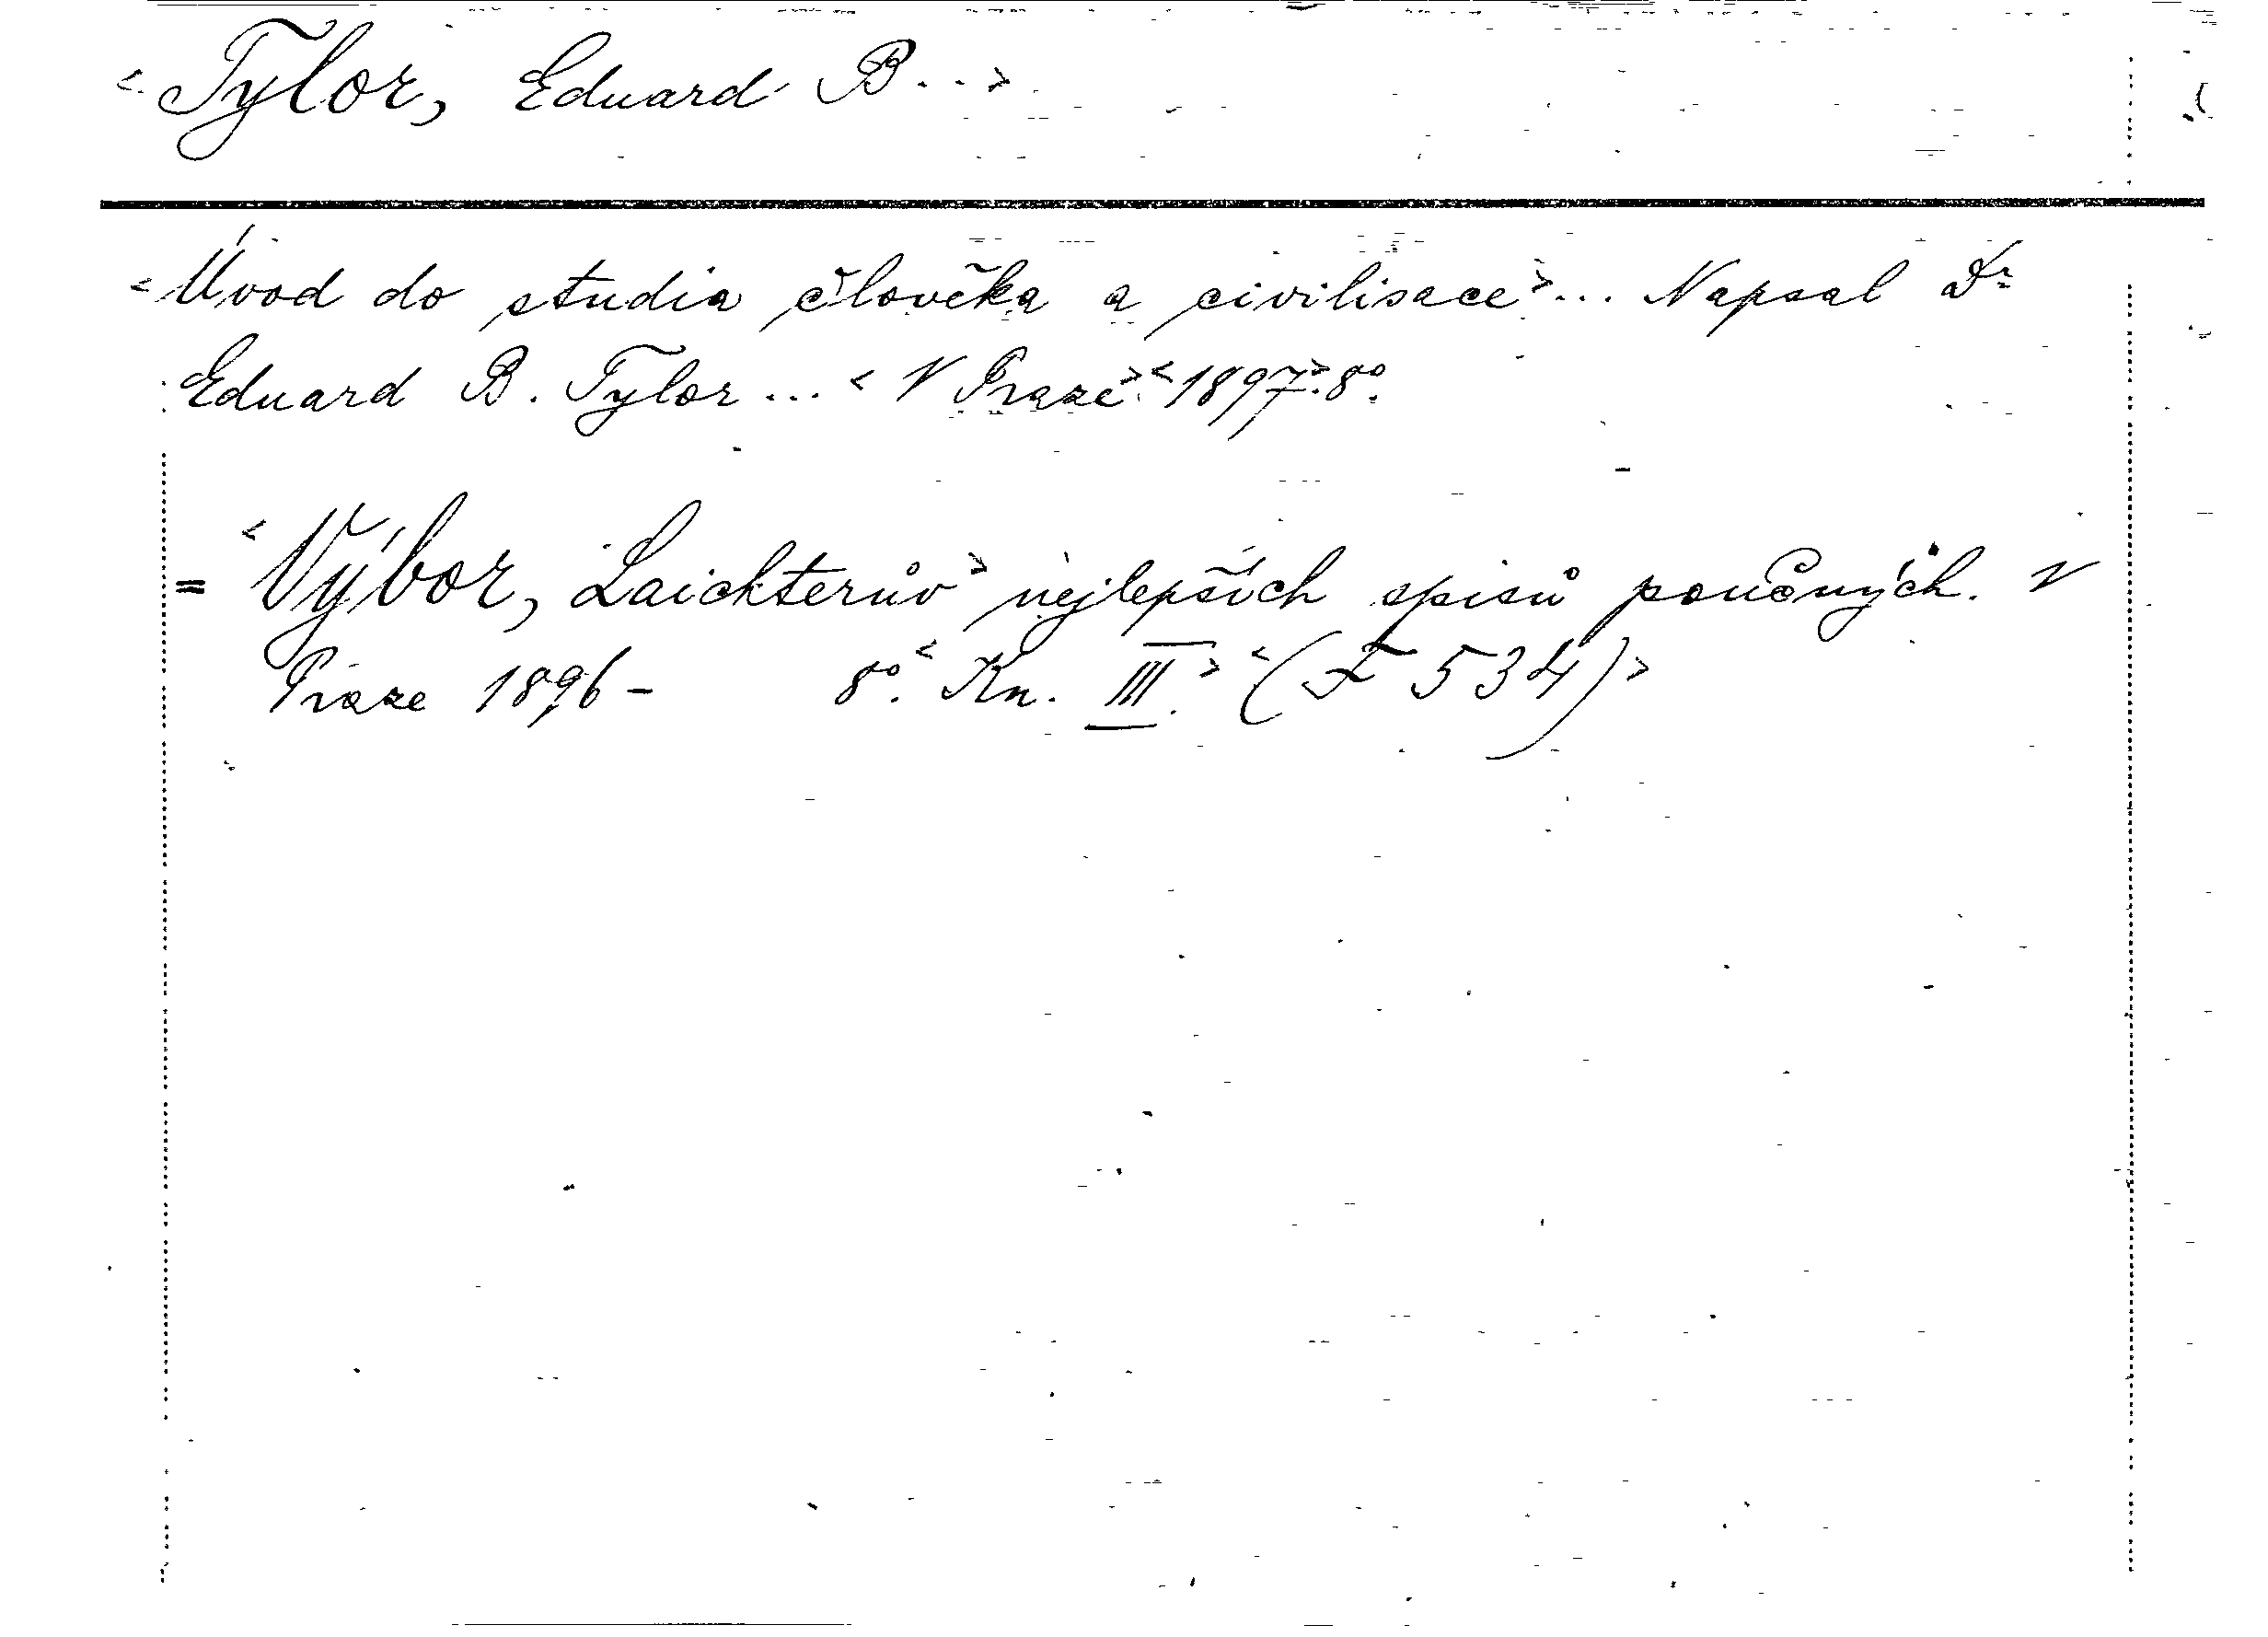 <Tylor, Eduard B...>
<Úvod do studia člověka a civilisace>... Napsal Dr
Eduard B. Tylor... <V Praze><1897>.8º.
= <Výbor, Laichterův> nejlepších spisů poučných. V
Praze 1896- 8º. <Kn. III.> <(F 534)>